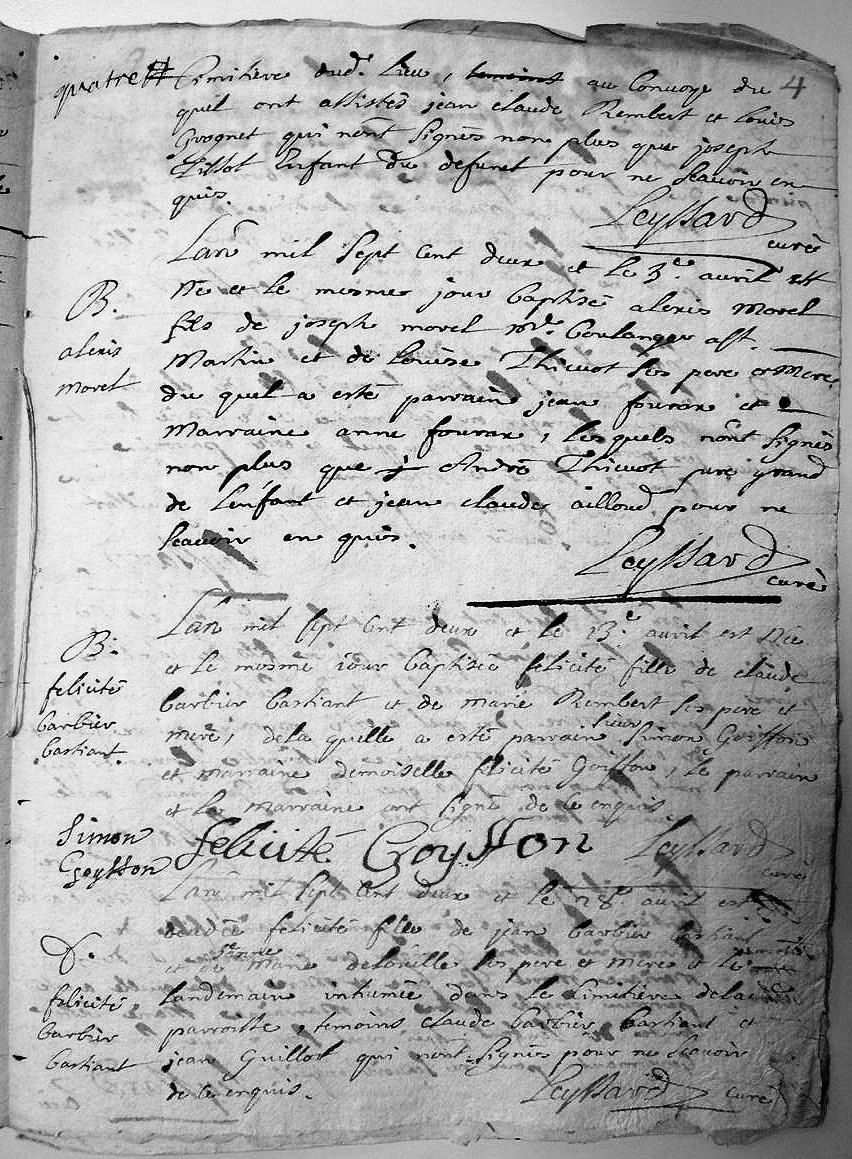 quatre
Cimitiere dud. lieu, temoins au Convoye du 4
quel ont assistés jean claude Rembert et louis
Grognet qui n'ont signés non plus que joseph
Tillot Enfant du defunct pour ne scavoir en
quis.
Leyssard
curé
Lan mil sept cent deux et le 3e. avril est
Né et le mesme jour baptisé alexis Morel
fils de joseph morel md. boulanger a st.
Martin et de Louise Thieuot ses pere et Mere
du quel a esté parrain jean fourar et
Marraine anne fourar, lesquels n'ont signés
non plus que André Thieuot pere grand
de L'enfant et jean claude ailloud pour ne
scavoir en quis.
Leyssard
curé
B.
alexis
morel
L'an mil sept cent deux et le 13e. avril est Née
et le mesme jour baptisée felicité fille de claude
barbier bastiant et de marie Rembert ses pere et
mere, de la quelle a esté parrain sieur Simon Goiffon
et marraine demoiselle felicité Goiffon, le parrain
et la Marraine ont signé de ce enquis
B.
felicité
barbier
bastiant.
Simon
Goyffon
felicité Goyffon
Leyssard
curé
Lan mil sept cent deux et le 28e avril est
decedée felicité fille de jean barbier bastiant
et de jeanne Marie ses pere et mere et le
landemain inhumée dans le Cimitiere de la
parroisse, temoins claude barbier bastiant et
jean Guillot qui n'ont signés pour ne scavoir
de ce enquis.
Leyssard curé
felicité
barbier
bastiant